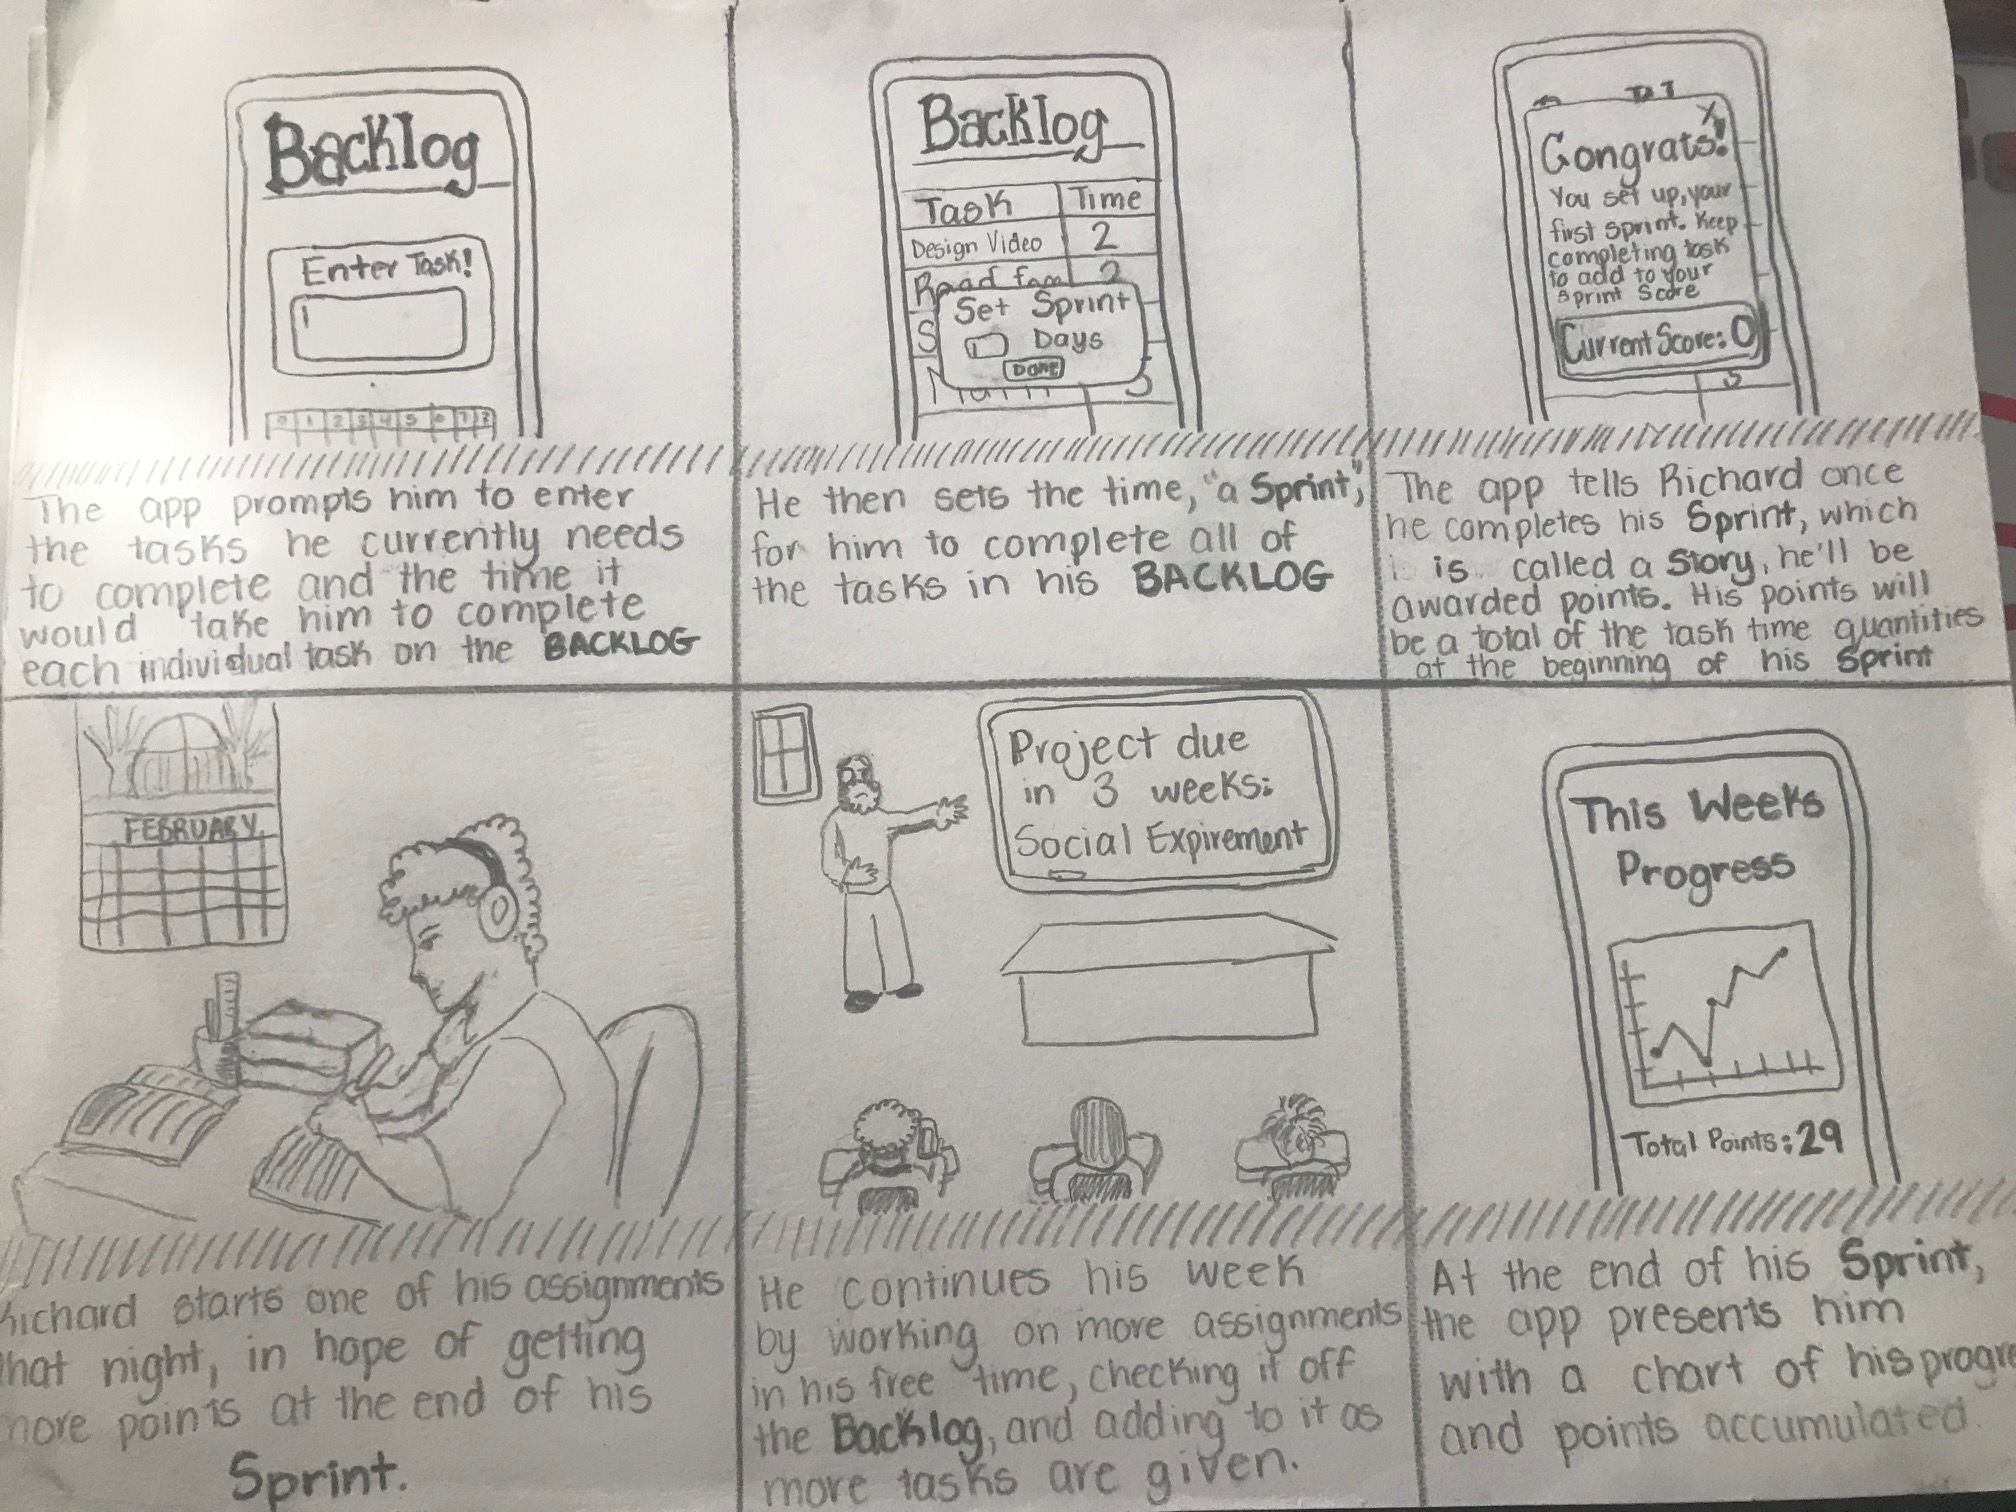 Backlog
Enter Task!
0 1 2 3 4 5 6 7 8
The app prompts him to enter
the tasks he currently needs
to complete and the time it
would take him to complete
each individual task on the BACKLOG
Backlog
Task Time
Design Video 2
Read fam 2
Set Sprint
S
Days
DONE
He then sets the time, "a Sprint,"
for him to complete all of
the tasks in his BACKLOG
X
Congrats!
You set up, your
first sprint. Keep
completing task
to add to your
sprint score
Current Score: 0
The app tells Richard once
he completes his Sprint, which
is called a Story, he'll be
awarded points. His points will
be a total of the task time quantities
at the beginning of his Sprint
FEBRUARY
Richard starts one of his assignments
that night, in hope of getting
more points at the end of his
Sprint.
Project due
in 3 weeks:
Social Expirement
He continues his week
by working on more assignments
in his free time, checking it off
the Backlog, and adding to it as
more tasks are given.
This Weeks
Progress
Total Points: 29
At the end of his Sprint,
the app presents him
with a chart of his progre
and points accumulated.